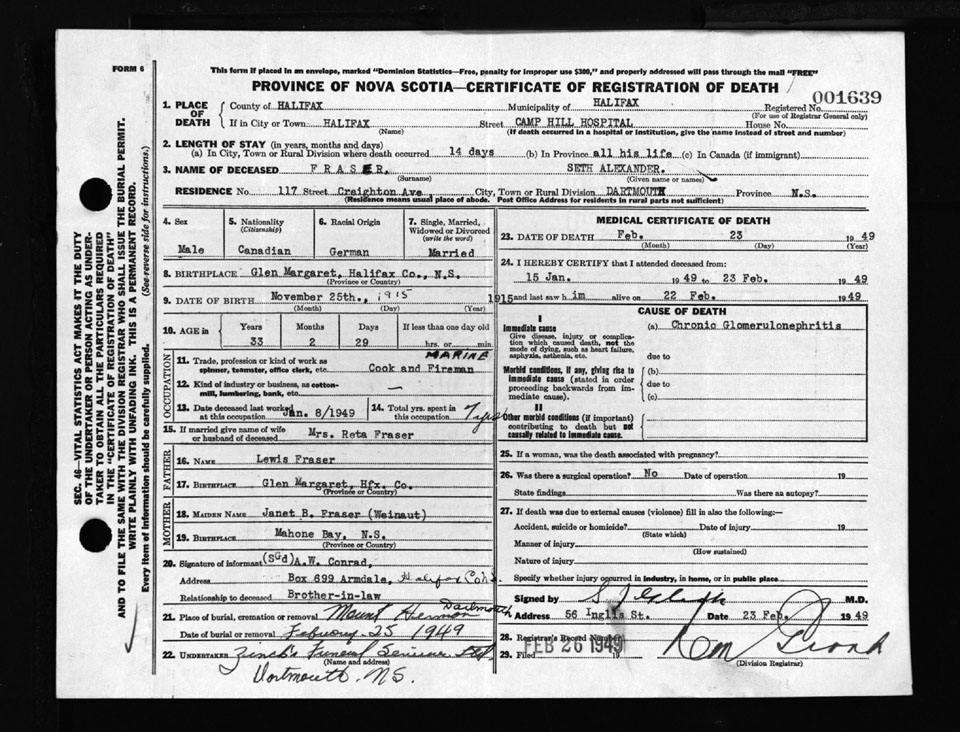 FORM 6
This form if placed in an envelope, marked "Dominion Statistics—Free, penalty for improper use $300," and properly addressed will pass through the mail "FREE"
PROVINCE OF NOVA SCOTIA—CERTIFICATE OF REGISTRATION OF DEATH
001639
1. PLACE OF DEATH County of HALIFAX Municipality of HALIFAX Registered No.
(For use of Registrar General only)
If in City or Town HALIFAX Street CAMP HILL HOSPITAL House No.
(Name) (If death occurred in a hospital or institution, give the name instead of street and number)
2. LENGTH OF STAY (in years, months and days)
(a) In City, Town or Rural Division where death occurred 14 days (b) In Province all his life (c) In Canada (if immigrant)
3. NAME OF DECEASED FRASER. SETH ALEXANDER.
(Surname) (Given name or names)
RESIDENCE No 117 Street Creighton Ave City, Town or Rural Division DARTMOUTH Province N.S.
(Residence means usual place of abode. Post Office Address for residents in rural parts not sufficient)
4. Sex 5. Nationality (Citizenship) 6. Racial Origin 7. Single, Married, Widowed or Divorced (write the word)
Male Canadian German Married
8. BIRTHPLACE Glen Margaret, Halifax Co., N.S.
(Province or Country)
9. DATE OF BIRTH November 25th., 1915 1915
(Month) (Day) (Year)
10. AGE in Years Months Days If less than one day old
33 2 29 hrs. or min.
OCCUPATION
MARINE
11. Trade, profession or kind of work as spinner, teamster, office clerk, etc. Cook and Fireman
12. Kind of industry or business, as cotton-mill, lumbering, bank, etc. —
13. Date deceased last worked at this occupation Jan. 8/1949 14. Total yrs. spent in this occupation 7 yrs
15. If married give name of wife or husband of deceased Mrs. Reta Fraser
FATHER
16. NAME Lewis Fraser
17. BIRTHPLACE Glen Margaret, Hfx. Co.
(Province or Country)
MOTHER
18. MAIDEN NAME Janet B. Fraser (Weinaut)
19. BIRTHPLACE Mahone Bay, N.S.
(Province or Country)
20. Signature of informant (Sgd) A.W. Conrad,
Address Box 699 Armdale, Halifax Co N.S.
Relationship to deceased Brother-in-law
21. Place of burial, cremation or removal Mount Hermon Dartmouth
Date of burial or removal February 25 1949
22. UNDERTAKER Zinck's Funeral Service Ltd
(Name and address)
Dartmouth. NS.
MEDICAL CERTIFICATE OF DEATH
23. DATE OF DEATH Feb. 23 1949
(Month) (Day) (Year)
24. I HEREBY CERTIFY that I attended deceased from:
15 Jan. 1949 to 23 Feb. 1949
and last saw him alive on 22 Feb. 1949
CAUSE OF DEATH
I
Immediate cause
Give disease, injury or complication which caused death, not the mode of dying, such as heart failure, asphyxia, asthenia, etc.
(a) Chronic Glomerulonephritis
due to
Morbid conditions, if any, giving rise to immediate cause (stated in order proceeding backwards from immediate cause).
(b)
due to
(c)
II
Other morbid conditions (if important) contributing to death but not causally related to immediate cause.
25. If a woman, was the death associated with pregnancy?
26. Was there a surgical operation? No Date of operation 19
State findings Was there an autopsy?
27. If death was due to external causes (violence) fill in also the following:—
Accident, suicide or homicide? Date of injury 19
(State which)
Manner of injury
(How sustained)
Nature of injury
Specify whether injury occurred in industry, in home, or in public place
Signed by M.D.
Address 56 Inglis St. Date 23 Feb. 1949
28. Registrar's Record Number
29. Filed FEB 26 1949 19
(Division Registrar)
SEC. 46—VITAL STATISTICS ACT MAKES IT THE DUTY
OF THE UNDERTAKER OR PERSON ACTING AS UNDER-
TAKER TO OBTAIN ALL THE PARTICULARS REQUIRED
IN THE "CERTIFICATE OF REGISTRATION OF DEATH"
AND TO FILE THE SAME WITH THE DIVISION REGISTRAR WHO SHALL ISSUE THE BURIAL PERMIT.
WRITE PLAINLY WITH UNFADING INK. THIS IS A PERMANENT RECORD.
Every item of information should be carefully supplied. (See reverse side for instructions.)